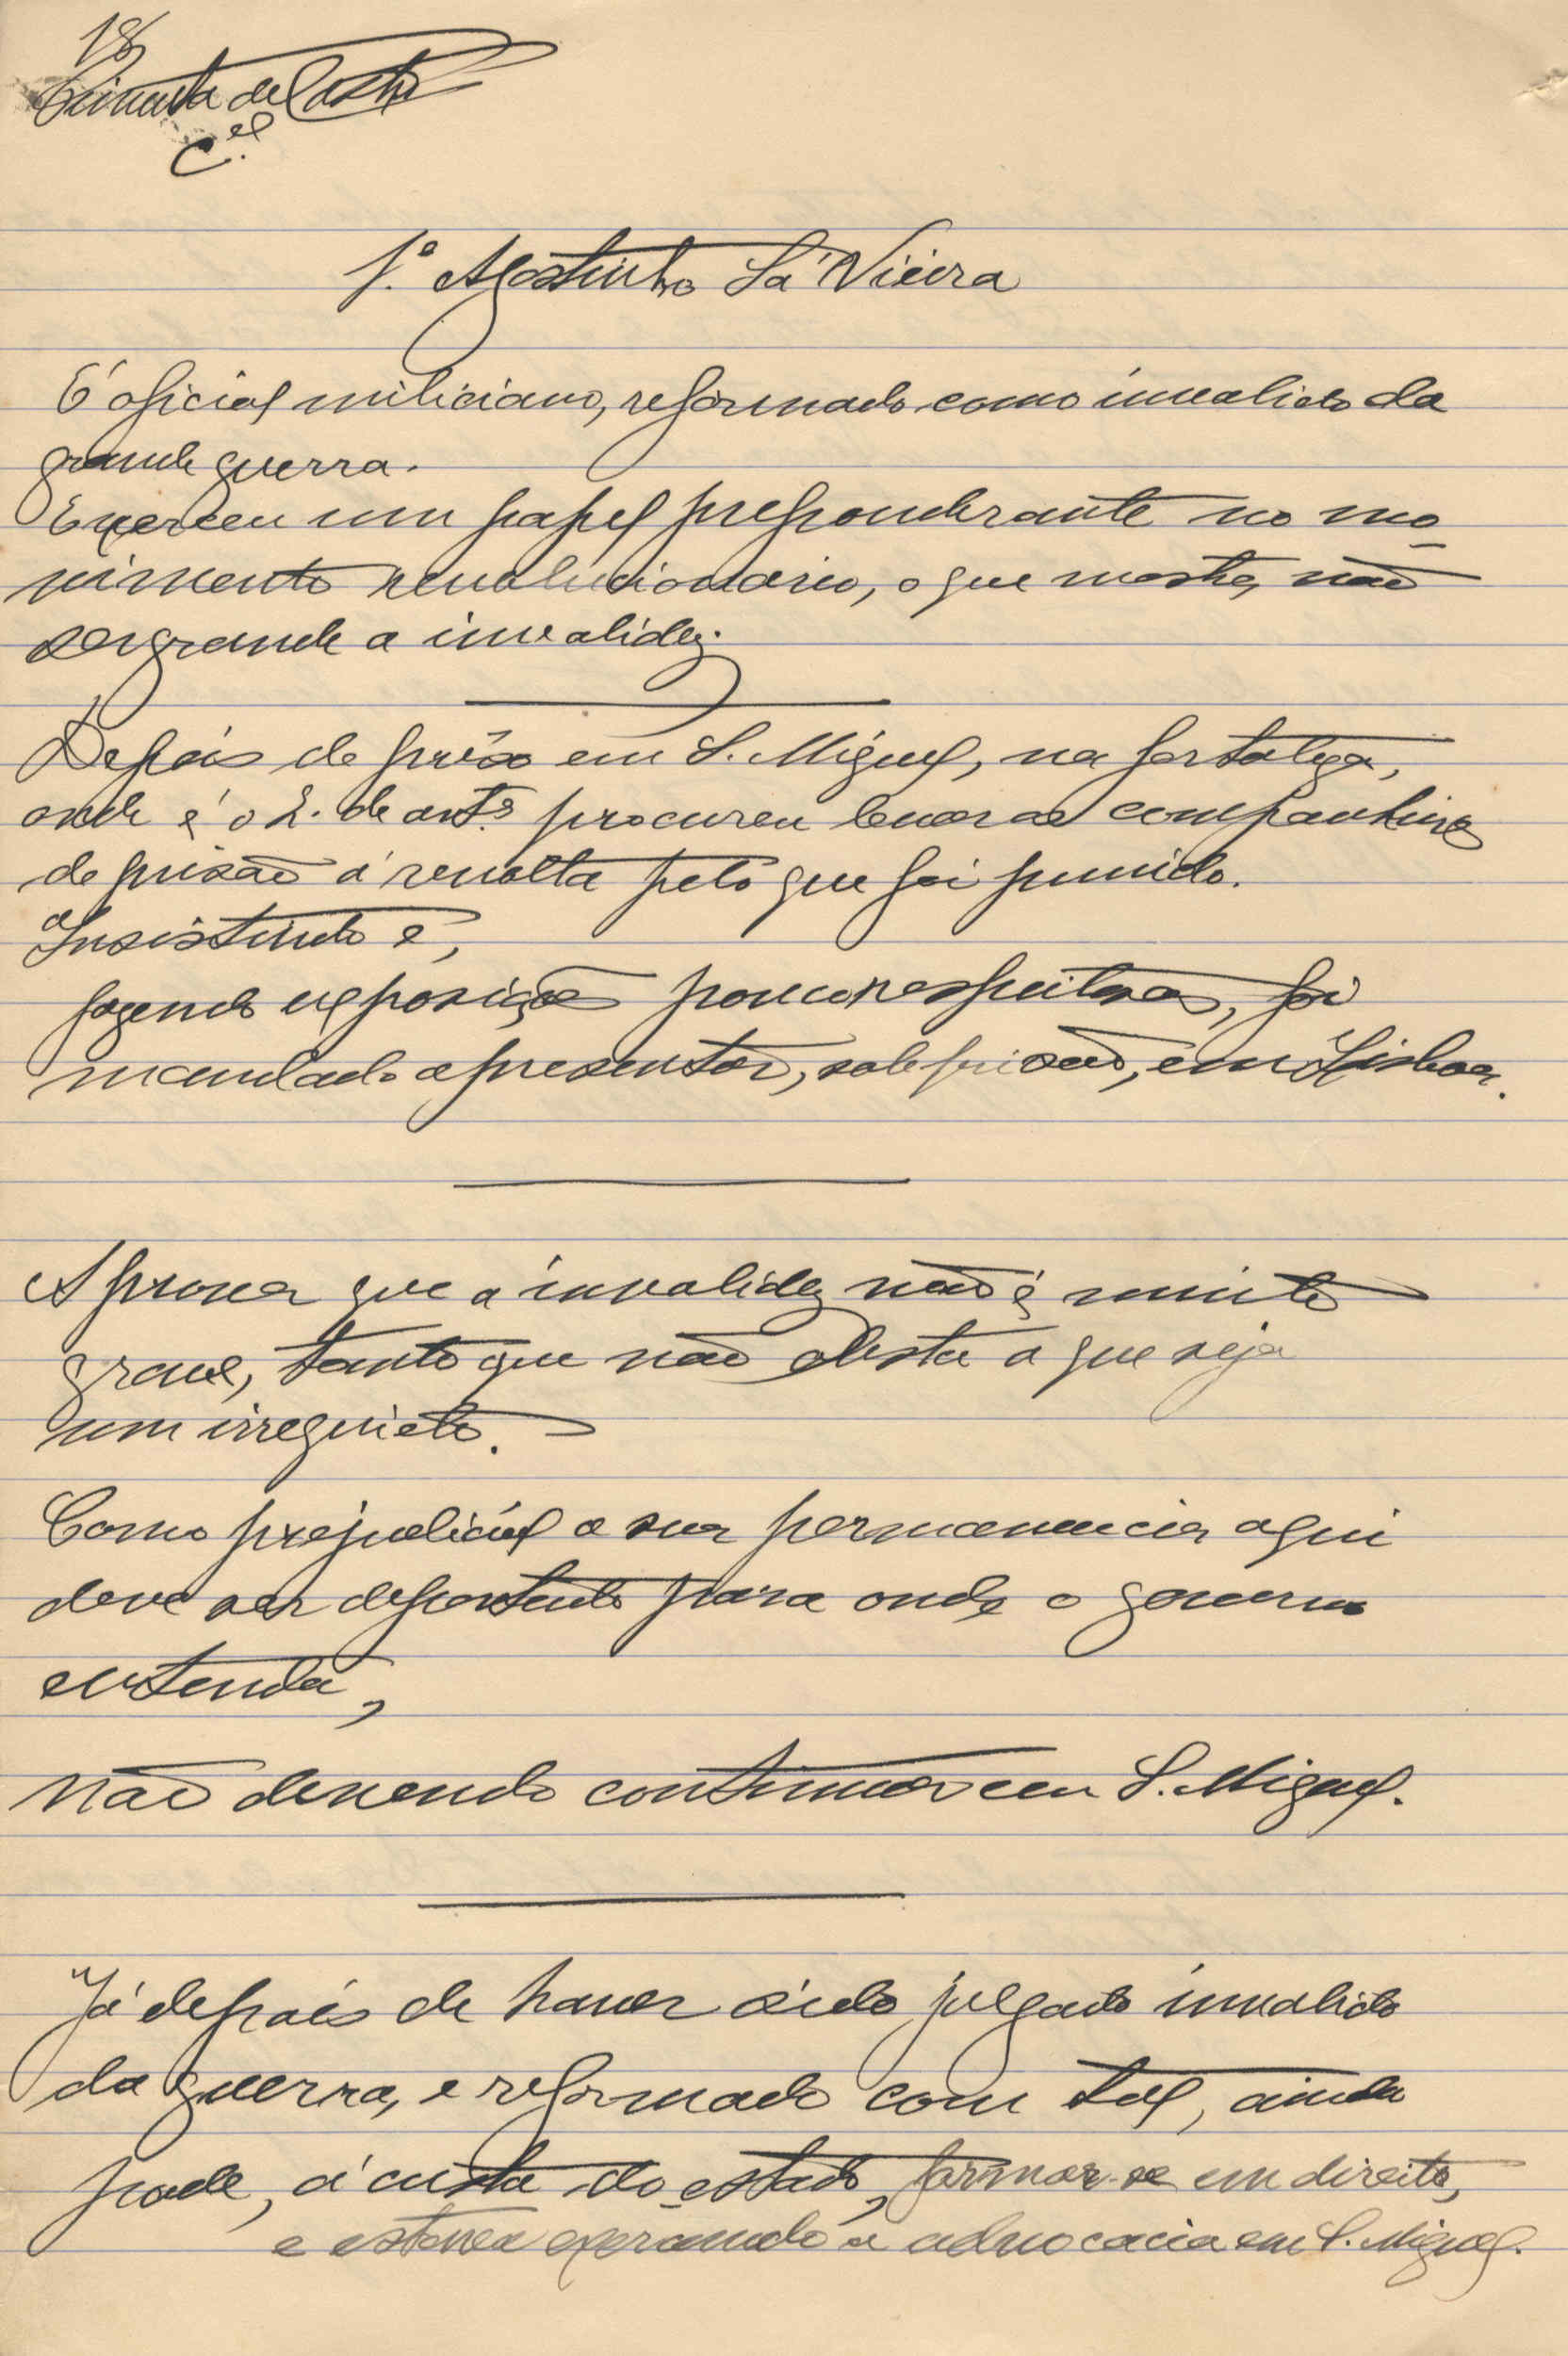 18
Pimenta de Castro
C.el
1.º Agostinho Sá Vieira
É oficial miliciano, reformado como invalido da
grande guerra.
Exerceu um papel preponderante no mo-
vimento revolucionario, o que mostra não
ser grande a invalidez.
Depois de prêso em S. Miguel, na fortaleza,
onde é o 2. de art.ª procurou levar os companheiros
de prisão á revolta pelo que foi punido.
Insistindo e,
fazendo exposições pouco respeitosas, foi
mandado apresentar, sob prisão, em Lisboa.
A prova que a invalidez não é muito
grave, tanto que não obsta a que seja
um irrequieto.
Como prejudicial a sua permanencia aqui
deve ser deportado para onde o governo
entenda,
não devendo continuar em S. Miguel.
Já depois de haver sido julgado invalido
da guerra, e reformado com tal, ainda
poude, á custa do estado, formar-se em direito,
e estava exercendo a advocacia em S. Miguel.